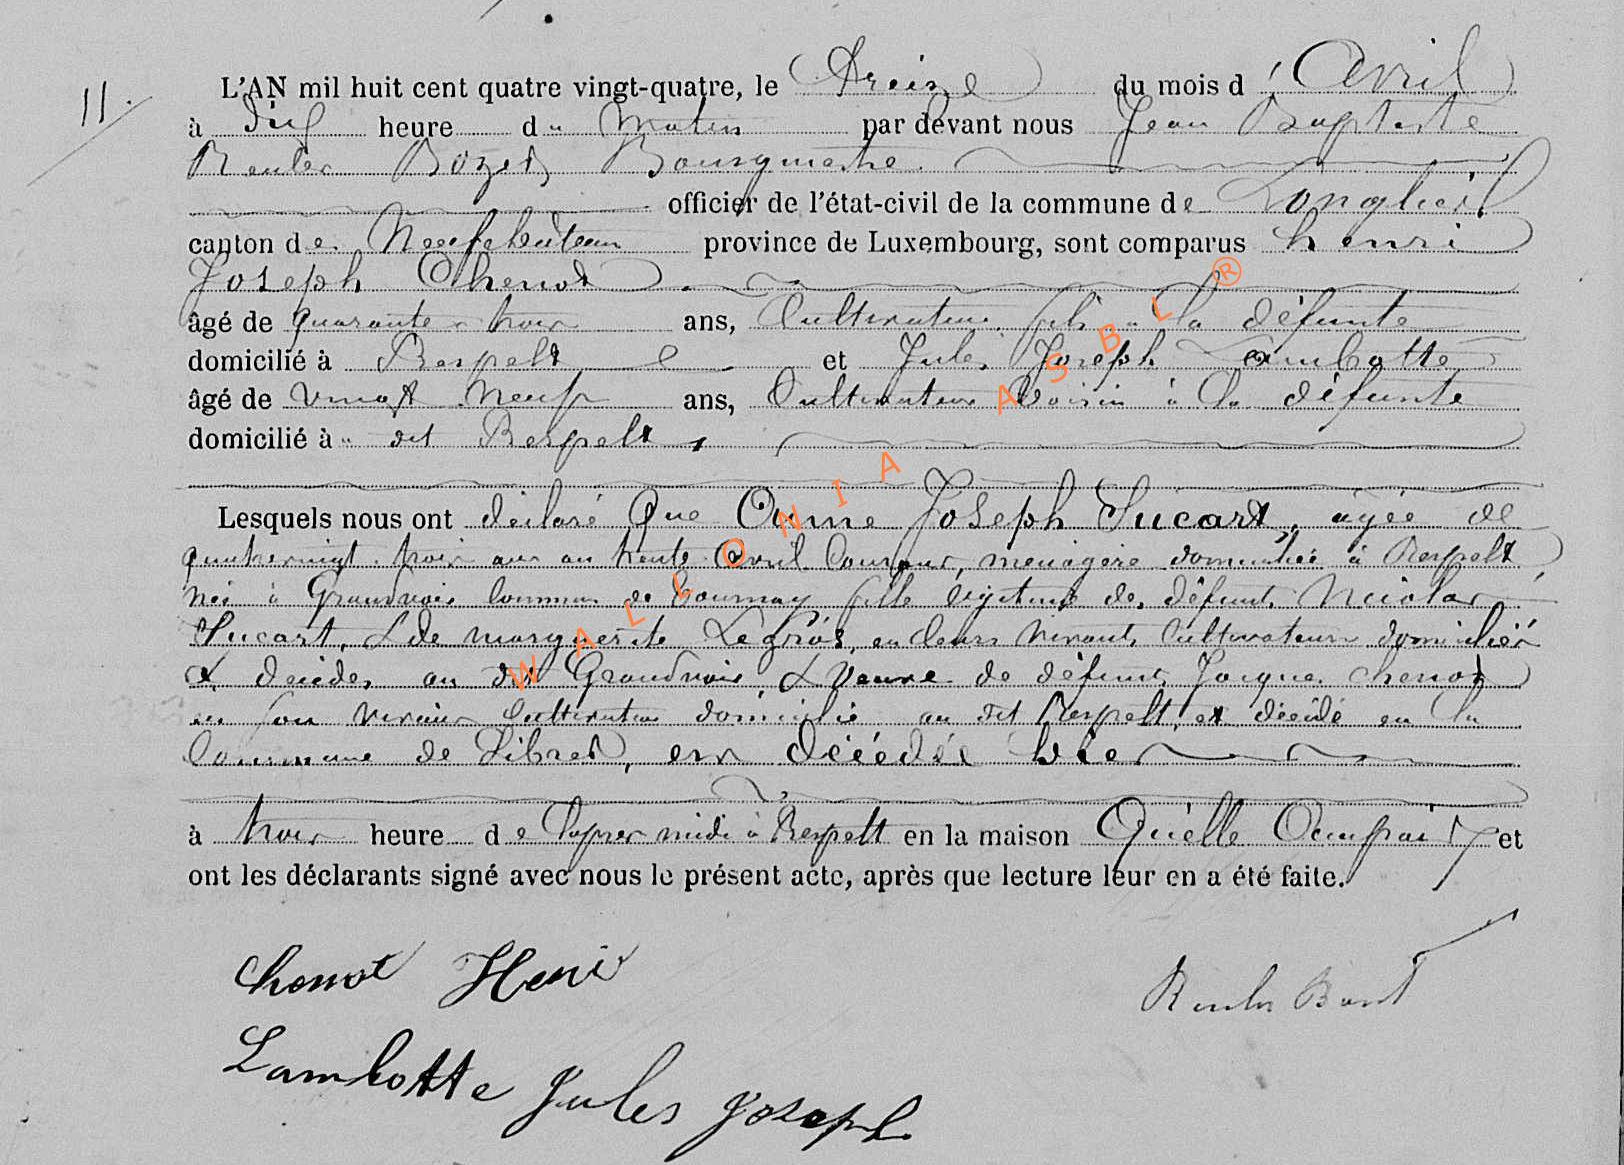 11.
L'AN mil huit cent quatre vingt-quatre, le Treize du mois d'Avril
à dix heure du Matin par devant nous Jean Baptiste
Reuler Bozet Bourgmestre
officier de l'état-civil de la commune de Longlier
canton de Neufchâteau province de Luxembourg, sont comparus henri
Joseph Chenot
âgé de quarante trois ans, Cultivateur fils à la défunte
domicilié à Respelt et Jules Joseph Lambotte
âgé de vingt Neuf ans, Cultivateur Voisin à la défunte
domicilié à dit Respelt
Lesquels nous ont déclaré Que Anne Joseph Sucart, agée de
quatrevingt trois ans au trente avril Courant, menagère domiciliée à Respelt
née à Grandvoir Commune de Tournay fille légitime de défunt Nicolas
Sucart, & de marguerite Legros, en leurs vivants Cultivateurs domiciliés
& décédés au dit Grandvoir & Veuve de défunt Jacque chenot
en son vivant Cultivateur domicilié au dit Respelt et décédé en la
Commune de Sibret, est décédée hier
à trois heure de l'apres midi à Respelt en la maison Qu'elle Occupait et
ont les déclarants signé avec nous le présent acte, après que lecture leur en a été faite.
chenot Henri
Lambotte Jules Joseph
WALLONIA ASBL ®